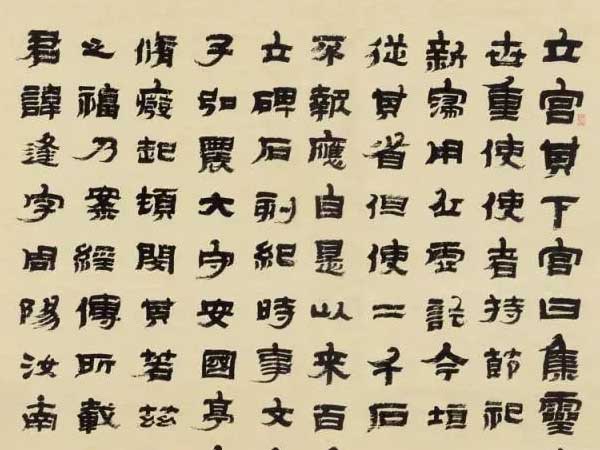 立宮其下宮曰集靈
世重使使者持節祀
新寖用丘虛訖今垣
從其省但使二千石
不報應自是以來百
立碑石刻紀時事文
子弘農大守安國亭
脩廢起頓閔其若茲
之福乃案經傳所載
君諱逢字周陽汝南